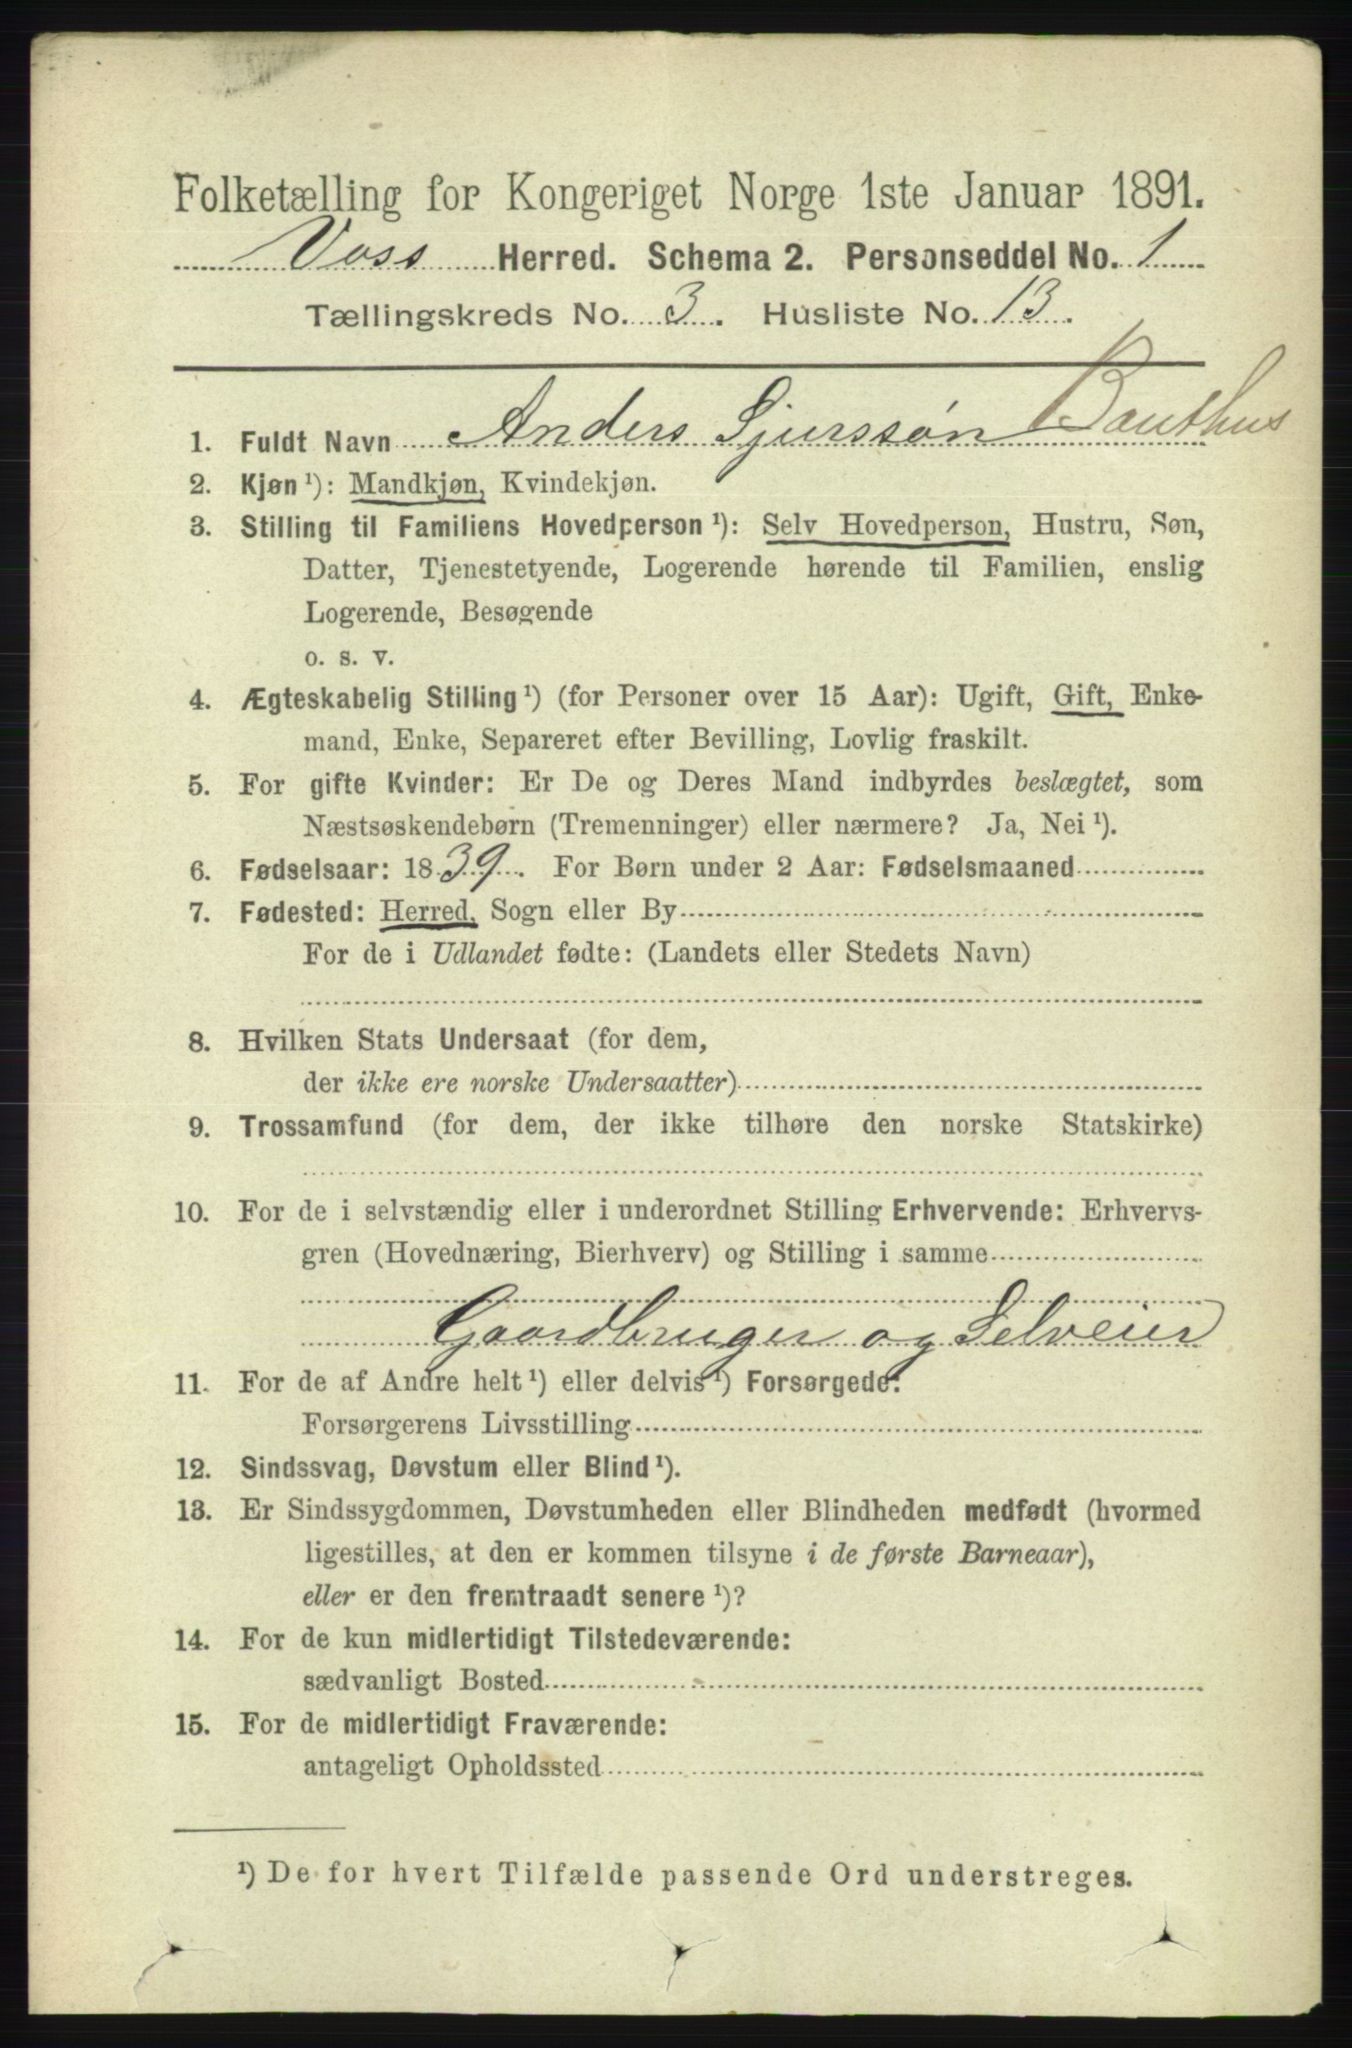 Folketælling for Kongeriget Norge 1ste Januar 1891.
Voss Herred. Schema 2. Personseddel No. 1
Tællingskreds No. 3. Husliste No. 13.
1. Fuldt Navn Anders Sjurssøn Bauthus
2. Kjøn ¹): Mandkjøn, Kvindekjøn.
3. Stilling til Familiens Hovedperson ¹): Selv Hovedperson, Hustru, Søn,
Datter, Tjenestetyende, Logerende hørende til Familien, enslig
Logerende, Besøgende
o. s. v.
4. Ægteskabelig Stilling ¹) (for Personer over 15 Aar): Ugift, Gift, Enke-
mand, Enke, Separeret efter Bevilling, Lovlig fraskilt.
5. For gifte Kvinder: Er De og Deres Mand indbyrdes beslægtet, som
Næstsøskendebørn (Tremenninger) eller nærmere? Ja, Nei ¹).
6. Fødselsaar: 1839. For Børn under 2 Aar: Fødselsmaaned
7. Fødested: Herred, Sogn eller By
For de i Udlandet fødte: (Landets eller Stedets Navn)
8. Hvilken Stats Undersaat (for dem,
der ikke ere norske Undersaatter)
9. Trossamfund (for dem, der ikke tilhøre den norske Statskirke)
10. For de i selvstændig eller i underordnet Stilling Erhvervende: Erhvervs-
gren (Hovednæring, Bierhverv) og Stilling i samme
Gaardbruger og Selveier
11. For de af Andre helt ¹) eller delvis ¹) Forsørgede:
Forsørgerens Livsstilling
12. Sindssvag, Døvstum eller Blind ¹).
13. Er Sindssygdommen, Døvstumheden eller Blindheden medfødt (hvormed
ligestilles, at den er kommen tilsyne i de første Barneaar),
eller er den fremtraadt senere ¹)?
14. For de kun midlertidigt Tilstedeværende:
sædvanligt Bosted
15. For de midlertidigt Fraværende:
antageligt Opholdssted
¹) De for hvert Tilfælde passende Ord understreges.